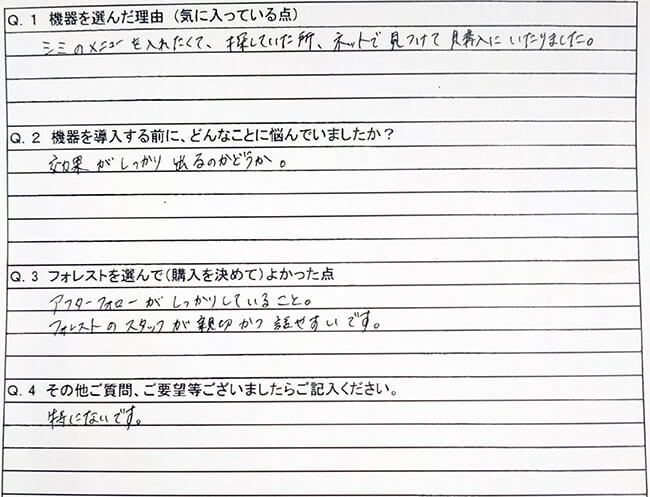 Q. 1 機器を選んだ理由（気に入っている点）
シミのメニューを入れたくて、探していた所、ネットで見つけて購入にいたりました。
Q. 2 機器を導入する前に、どんなことに悩んでいましたか？
効果がしっかり出るのかどうか。
Q. 3 フォレストを選んで（購入を決めて）よかった点
アフターフォローがしっかりしていること。
フォレストのスタッフが親切かつ話せすいです。
Q. 4 その他ご質問、ご要望等ございましたらご記入ください。
特にないです。